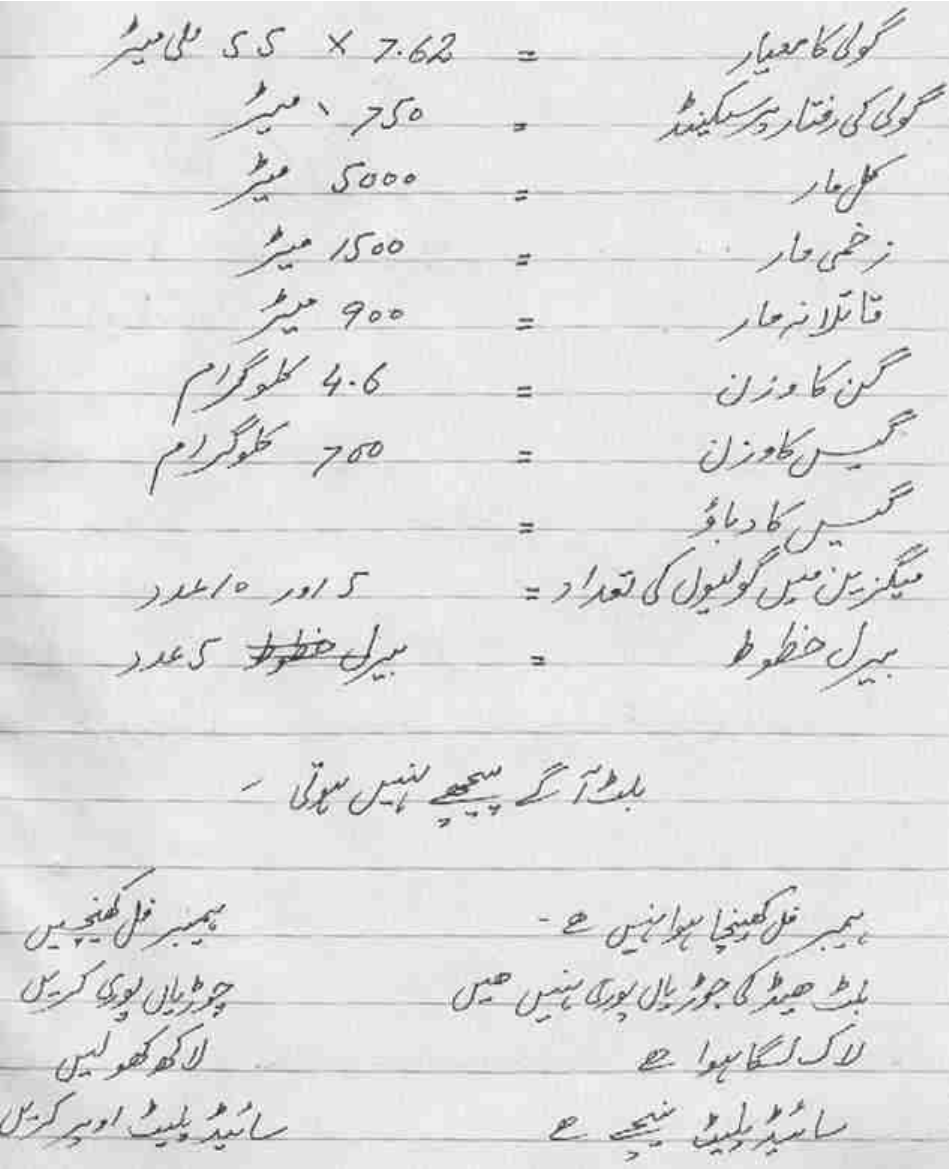 گولی کا معیار = 7.62 × 55 ملی میٹر
گولی کی رفتار پر سیکینڈ = 750 میٹر
کل مار = 5000 میٹر
زخمی مار = 1500 میٹر
قاتلانہ مار = 900 میٹر
گن کا وزن = 4.6 کلوگرام
گیس کا وزن = 700 کلوگرام
گیس کا دباؤ =
میگزین میں گولیوں کی تعداد = 5 اور 10 عدد
بیرل خطوط = بیرل خطوط 5 عدد
بلٹ آگے پیچھے نہیں ہوتی -
ہیمبر فل کھینچا ہوا نہیں ہے - ہیمبر فل کھینچیں
بلٹ ھیڈ کی چوڑیاں پوری نہیں ھیں چوڑیاں پوری کریں
لاک لگا ہوا ہے لاکھ کھولیں
سائیڈ پلیٹ نیچے ہے سائیڈ پلیٹ اوپر کریں